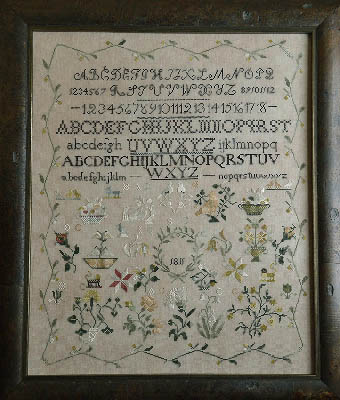 ABCDEFGHIJKLMNOPQ
1234567 RSTUVWXYZ 89101112
123456789101112131415161718
ABCDEFGHIJKLMNOPQRST
abcdefgh UVWXYZ ijklmnopq
ABCDEFGHIJKLMNOPQRSTUV
abcdefghijklm WXYZ nopqrstuvwxyz